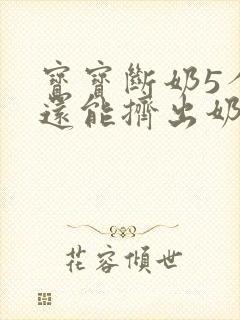 寶寶斷奶5
還能擠出奶
花容傾世